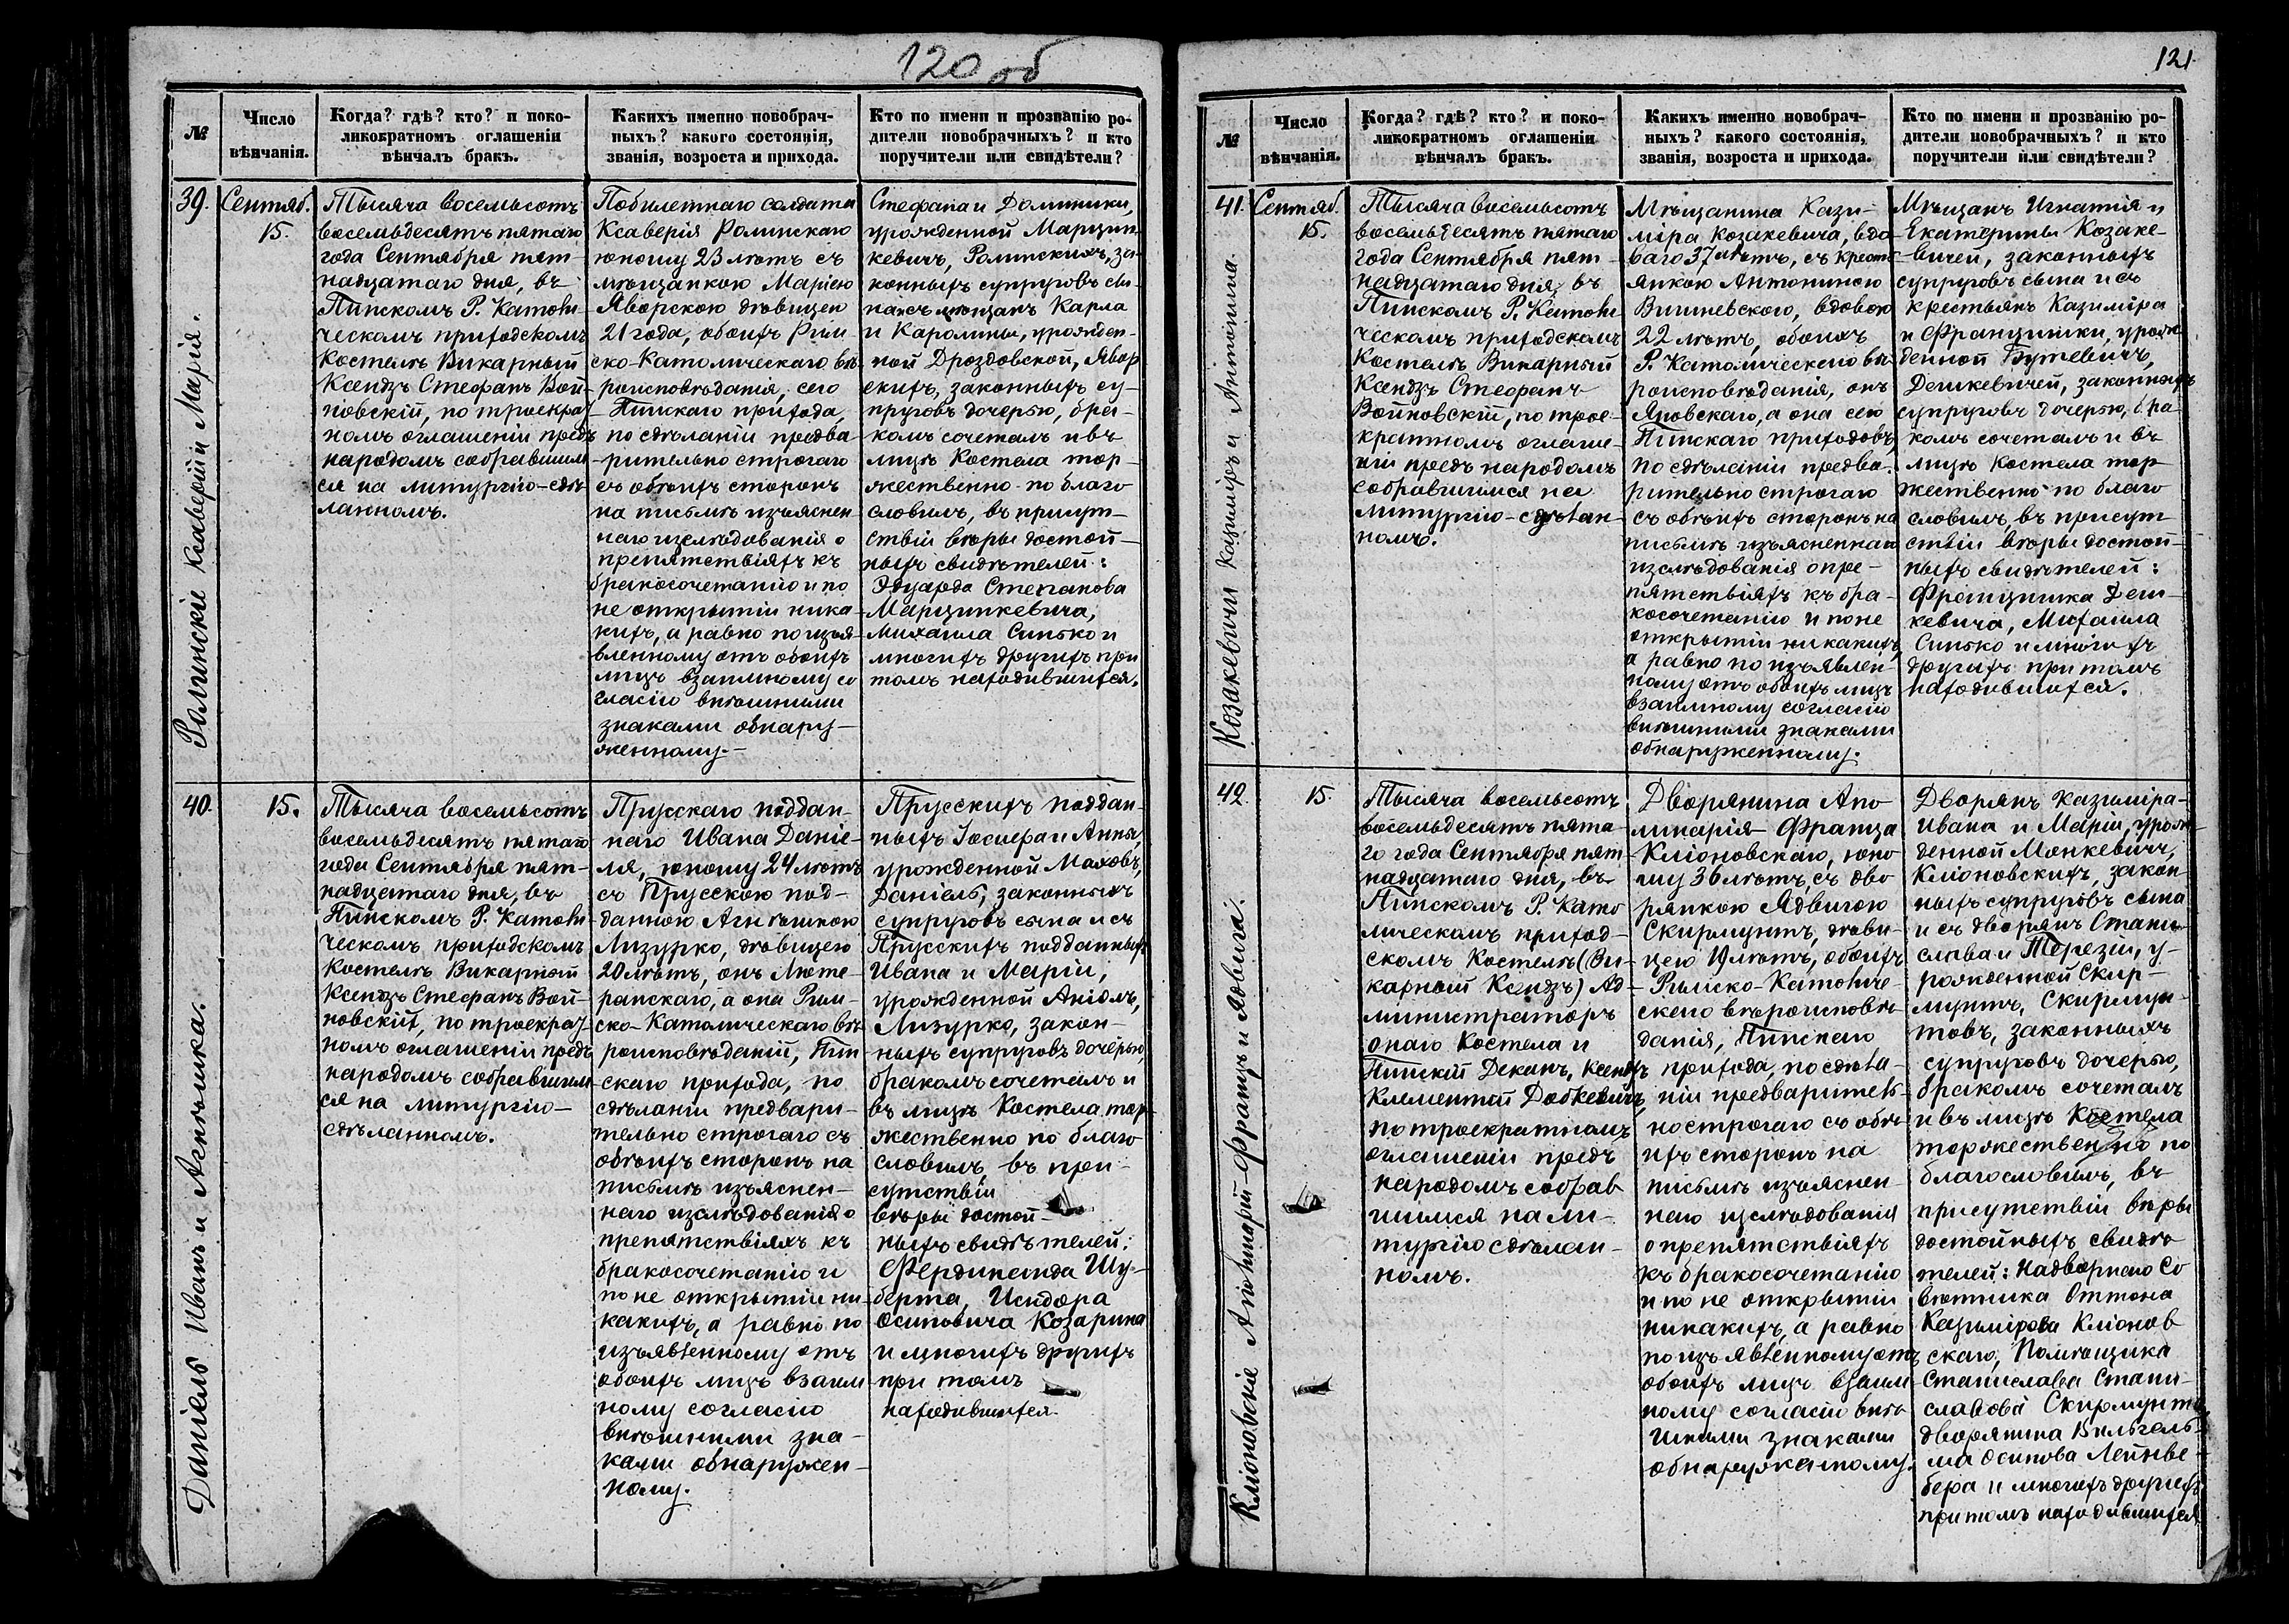 120 об
№
Число
вѣнчанія.
Когда? гдѣ? кто? и поко-
ликократномъ оглашеніи
вѣнчалъ бракъ.
Какихъ именно новобрач-
ныхъ? какого состоянія,
званія, возроста и прихода.
Кто по имени и прозванію ро-
дители новобрачныхъ? и кто
поручители или свидѣтели?
39.
Ролинскіе Ксаверій и Марія.
Сентяб.
15.
Тысяча восемьсотъ
восемьдесятъ пятаго
года Сентября пят-
надцатаго дня, въ
Пинскомъ Р. Католи
ческомъ приходскомъ
Костелѣ Викарный
Ксендзъ Стефанъ Вой-
новскій, по троекрат
номъ оглашеніи предъ
народомъ собравшим
ся на литургію-сдѣ
ланномъ.
Побилетнаго солдата
Ксаверія Ролинскаго
юношу 23 лѣтъ съ
мѣщанкою Маріею
Яворскою дѣвицею
21 года, обоихъ Рим
ско-Католическаго вѣ
роисповѣданія, сего
Пинскаго прихода,
по сдѣланіи предва
рительно строгаго
съ обѣихъ сторонъ
на письмѣ изъяснен
наго изслѣдованія о
препятствіяхъ къ
бракосочетанію и по
не открытіи ника-
кихъ, а равно по изъя-
вленному отъ обоихъ
лицъ взаимному со
гласію внѣшними
знаками обнару-
женному.-
Стефана и Доминики,
урожденной Марцин-
кевичъ, Ролинскихъ, за-
конныхъ супруговъ сы-
на съ мѣщанъ Карла
и Каролины, урожден-
ной Дроздовской, Явор
скихъ, законныхъ су-
пруговъ дочерью, бра-
комъ сочеталъ и въ
лицѣ Костела тор-
жественно по благо
словилъ, въ присут-
ствіи вѣры достой-
ныхъ свидѣтелей:
Эдуарда Степанова
Марцинкевича,
Михаила Синько и
многихъ другихъ при
томъ находившихся.
40.
Даніель Иванъ и Агнѣшка.
15.
Тысяча восемьсотъ
восемьдесятъ пятаго
года Сентября пят-
надцатаго дня, въ
Пинскомъ Р. Католи
ческомъ приходскомъ
Костелѣ Викарный
Ксендзъ Стефанъ Вой-
новскій, по троекрат
номъ оглашеніи предъ
народомъ собравшим
ся на литургію-
сдѣланномъ.
Прусскаго поддан-
наго Ивана Даніе-
ля, юношу 24 лѣтъ
съ Прусскою под-
данною Агнѣшкою
Лизурко, дѣвицею
20 лѣтъ, онъ Люте-
ранскаго, а она Рим-
ско-Католическаго вѣ
роисповѣданій, Пин
скаго прихода, по
сдѣланіи предвари-
тельно строгаго съ
обѣихъ сторонъ на
письмѣ изъяснен-
наго изслѣдованія о
препятствіяхъ къ
бракосочетанію и
по не открытіи ни-
какихъ, а равно по
изъявленному отъ
обоихъ лицъ взаим
ному согласію
внѣшними зна-
ками обнаружен-
ному.
Прусскихъ поддан-
ныхъ Іосифа и Анны,
урожденной Маховъ,
Даніель, законныхъ
супруговъ сына и съ
Прусскихъ подданныхъ
Ивана и Маріи,
урожденной Анколь,
Лизурко, закон-
ныхъ супруговъ дочерью,
бракомъ сочеталъ и
въ лицѣ Костела тор-
жественно по благо
словилъ, въ при-
сутствіи
вѣры достой-
ныхъ свидѣтелей:
Фердинанда Шу-
берта, Исидора
Осиповича Козарина
и многихъ другихъ
при томъ
находившихся
121
№
Число
вѣнчанія.
Когда? гдѣ? кто? и поко-
ликократномъ оглашеніи
вѣнчалъ бракъ.
Какихъ именно новобрач-
ныхъ? какого состоянія,
званія, возроста и прихода.
Кто по имени и прозванію ро-
дители новобрачныхъ? и кто
поручители или свидѣтели?
41.
Козакевичи Казиміръ и Антонина.
Сентяб.
15.
Тысяча восемьсотъ
восемьдесятъ пятаго
года Сентября пят-
надцатаго дня, въ
Пинскомъ Р. Католи
ческомъ приходскомъ
Костелѣ Викарный
Ксендзъ Стефанъ
Войновскій, по трое-
кратномъ оглаше-
ніи предъ народомъ
собравшимся на
литургію-сдѣлан-
номъ.
Мѣщанина Кази-
міра Козакевича, вдо
ваго 37 лѣтъ, съ крестъ
янкою Антониною
Вишневскою, вдовою
22 лѣтъ, обоихъ
Р. Католическаго вѣ-
роисповѣданія, онъ
Яновскаго, а она сего
Пинскаго приходовъ,
по сдѣланіи предва-
рительно строгаго
съ обѣихъ сторонъ на
письмѣ изъясненнаго
изслѣдованія о пре-
пятствіяхъ къ бра-
косочетанію и по не
открытіи никакихъ,
а равно по изъявлен-
ному отъ обоихъ лицъ
взаимному согласію
внѣшними знаками
обнаруженному.
Мѣщанъ Игнатія и
Екатерины Козаке-
вичей, законныхъ
супруговъ сына и съ
крестьянъ Казиміра
и Францишки, урож
денной Бутевичъ,
Дешкевичей, законныхъ
супруговъ дочерью, бра
комъ сочеталъ и въ
лицѣ Костела тор
жественно по благо
словилъ, въ присут
ствіи вѣры достой-
ныхъ свидѣтелей:
Францишка Деш-
кевича, Михаила
Синько и многихъ
другихъ при томъ
находившихся.
42.
Кліоновскіе Аполинарій-Францъ и Ядвига.
15.
Тысяча восемьсотъ
восемьдесятъ пята-
го года Сентября пят
надцатаго дня, въ
Пинскомъ Р. Като
лическомъ приход-
скомъ Костелѣ (Ви-
карный Ксендзъ) Ад-
министраторъ
онаго Костела и
Пинскій Деканъ, Ксендзъ
Климентій Доткевичъ,
по троекратномъ
оглашеніи предъ
народомъ собрав
шимся на ли-
тургію сдѣлан-
номъ.
Дворянина Апо
линарія-Франца
Кліоновскаго, юно
шу 36 лѣтъ, съ дво
рянкою Ядвигою
Скирмунтъ, дѣви-
цею 19 лѣтъ, обоихъ
Римско-Католиче-
скаго вѣроисповѣ-
данія, Пинскаго
прихода, по сдѣла-
ніи предваритель-
но строгаго съ обѣ-
ихъ сторонъ на
письмѣ изъяснен-
наго изслѣдованія
о препятствіяхъ
къ бракосочетанію
и по не открытіи
никакихъ, а равно
по изъявленному отъ
обоихъ лицъ взаим-
ному согласію внѣ
шними знаками
обнаруженному.
Дворянъ Казиміра-
Ивана и Маріи, урож-
денной Монкевичъ,
Кліоновскихъ, закон-
ныхъ супруговъ сына
и съ дворянъ Стани-
слава и Терезіи, у-
рожденной Скир-
мунтъ, Скирмун-
товъ, законныхъ
супруговъ дочерью,
бракомъ сочеталъ
и въ лицѣ Костела
торжественно по
благословилъ, въ
присутствіи вѣры
достойныхъ свидѣ
телей: Надворнаго Со
вѣтника Оттона
Казимірова Кліонов
скаго, Помѣщика
Станислава Стани-
славова Скирмунта,
дворянина Вильгель-
ма Осипова Лейнве-
бера и многихъ другихъ
при томъ находившихся